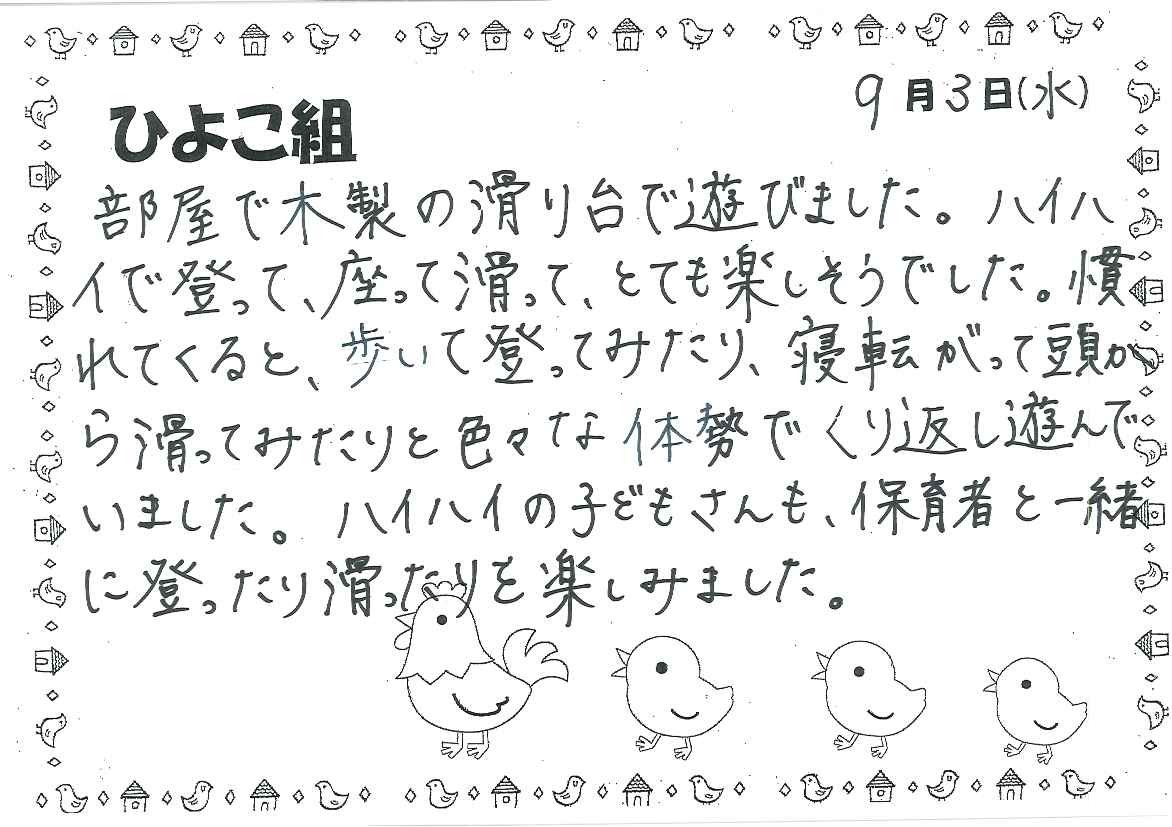 9月3日(水)
ひよこ組
部屋で木製の滑り台で遊びました。ハイハ
イで登って、座って滑って、とても楽しそうでした。慣
れてくると、歩いて登ってみたり、寝転がって頭か
ら滑ってみたりと色々な体勢でくり返し遊んで
いました。ハイハイの子どもさんも、保育者と一緒
に登ったり滑ったりを楽しみました。